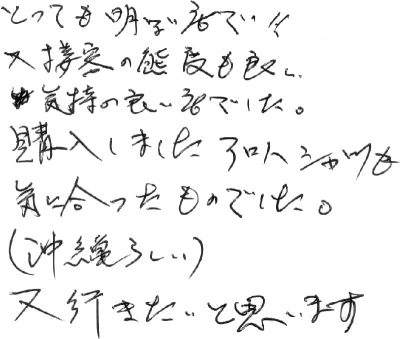 とっても明るい店でいい
又接客の態度も良く、
気持の良い店でした。
購入しましたアロハシャツも
気に合ったものでした。
(沖縄らしい)
又行きたいと思います